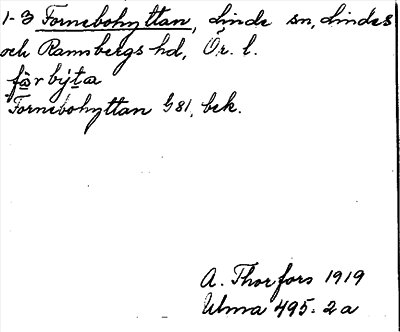 1-3 Fornebohyttan, Linde sn, Lindes
och Ramsbergs hd, Ör. l.
förbýta
Fornebohyttan G 81, bek.
A. Thorfors 1919
Ulma 495:2a